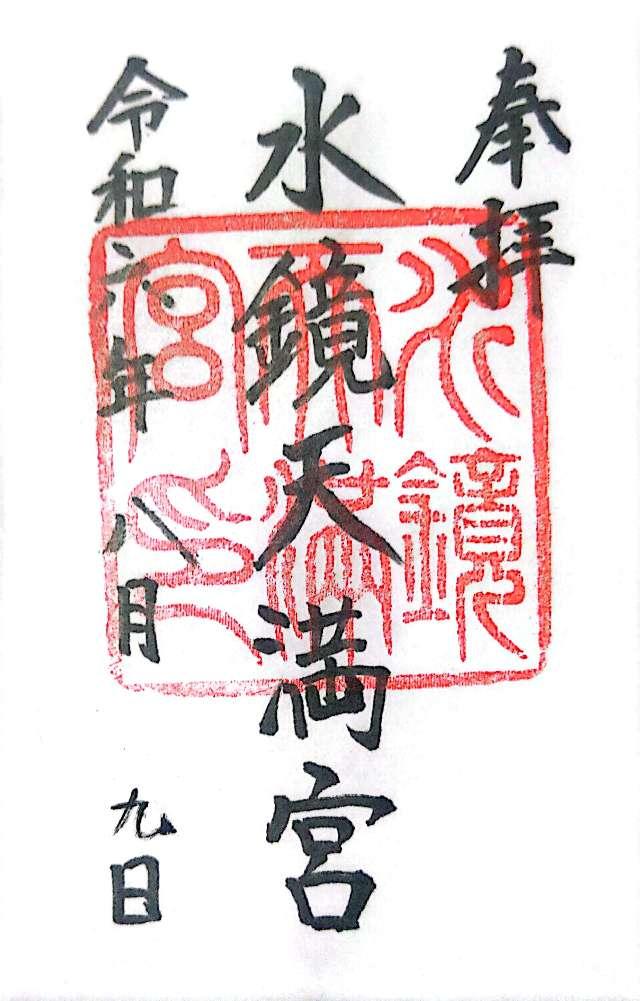 奉拝
水鏡天満宮
令和六年八月九日
水鏡天満宮印